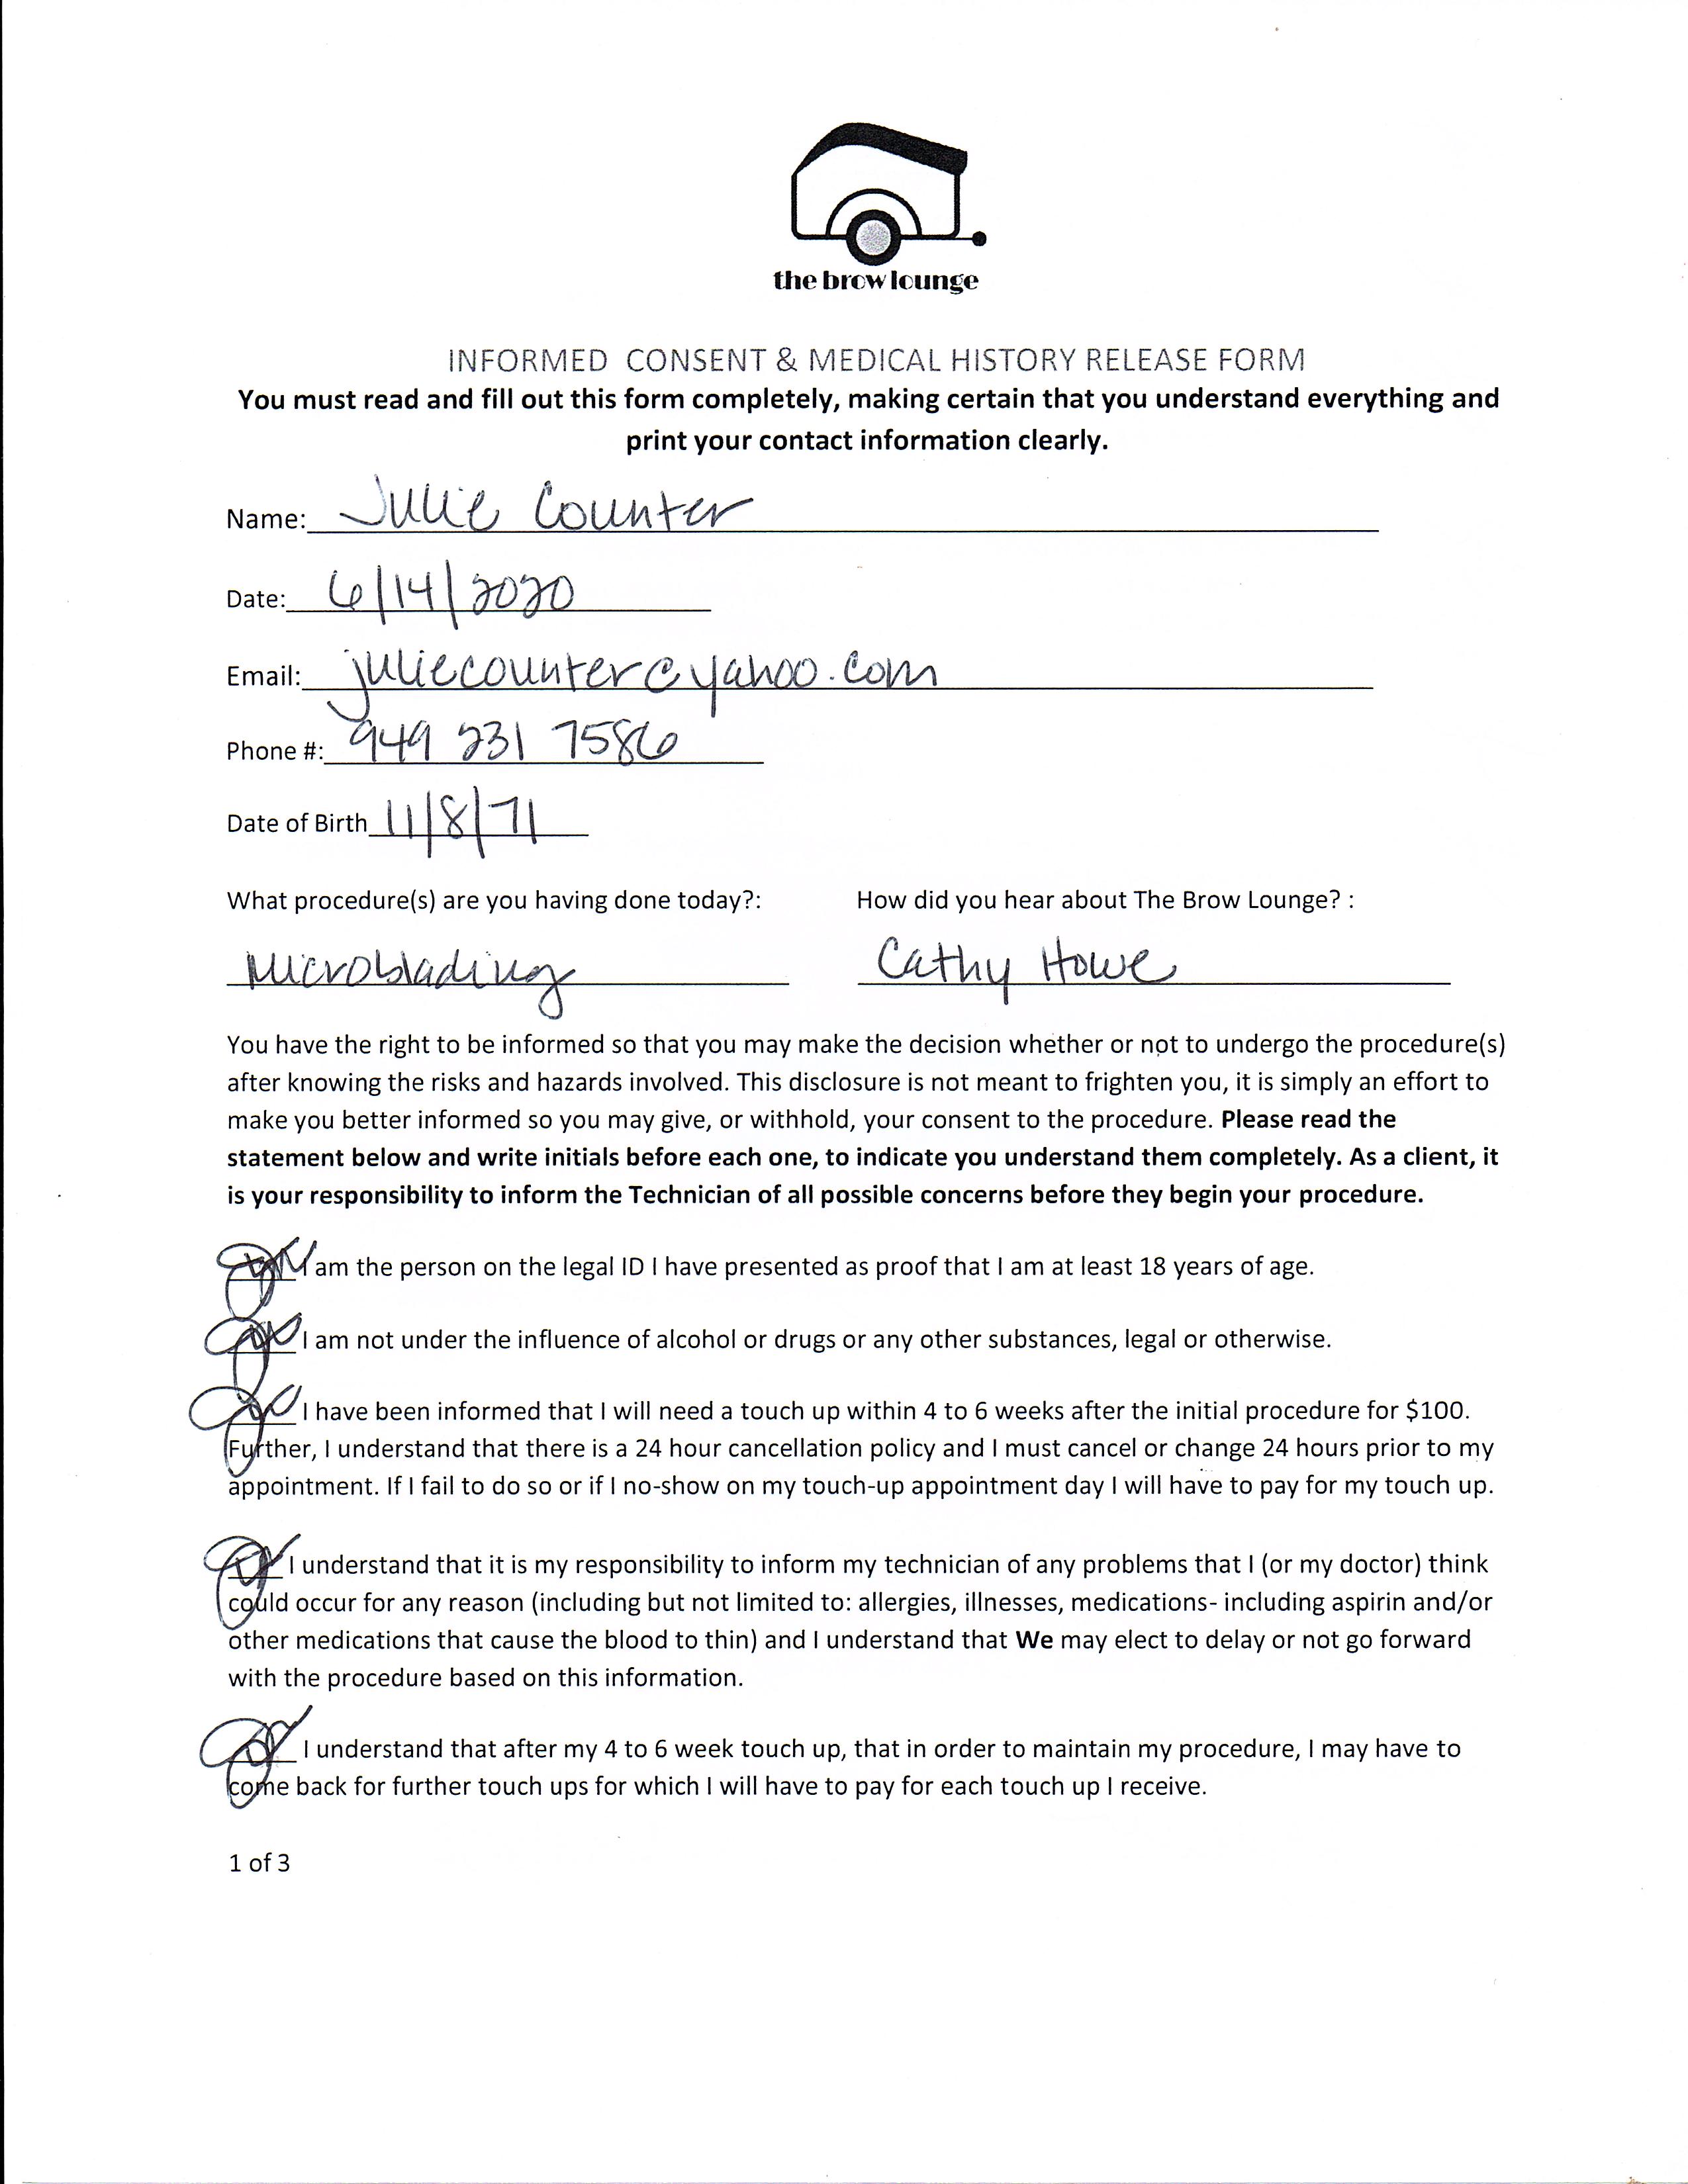 the brow lounge
INFORMED CONSENT & MEDICAL HISTORY RELEASE FORM
You must read and fill out this form completely, making certain that you understand everything and
print your contact information clearly.
Name: Julie Counter
Date: 6/14/2020
Email: juliecounter@yahoo.com
Phone #: 949 231 7586
Date of Birth 11/8/71
What procedure(s) are you having done today?: How did you hear about The Brow Lounge? :
Microblading Cathy Howe
You have the right to be informed so that you may make the decision whether or not to undergo the procedure(s)
after knowing the risks and hazards involved. This disclosure is not meant to frighten you, it is simply an effort to
make you better informed so you may give, or withhold, your consent to the procedure. Please read the
statement below and write initials before each one, to indicate you understand them completely. As a client, it
is your responsibility to inform the Technician of all possible concerns before they begin your procedure.
I am the person on the legal ID I have presented as proof that I am at least 18 years of age.
I am not under the influence of alcohol or drugs or any other substances, legal or otherwise.
I have been informed that I will need a touch up within 4 to 6 weeks after the initial procedure for $100.
Further, I understand that there is a 24 hour cancellation policy and I must cancel or change 24 hours prior to my
appointment. If I fail to do so or if I no-show on my touch-up appointment day I will have to pay for my touch up.
I understand that it is my responsibility to inform my technician of any problems that I (or my doctor) think
could occur for any reason (including but not limited to: allergies, illnesses, medications- including aspirin and/or
other medications that cause the blood to thin) and I understand that We may elect to delay or not go forward
with the procedure based on this information.
I understand that after my 4 to 6 week touch up, that in order to maintain my procedure, I may have to
come back for further touch ups for which I will have to pay for each touch up I receive.
1 of 3